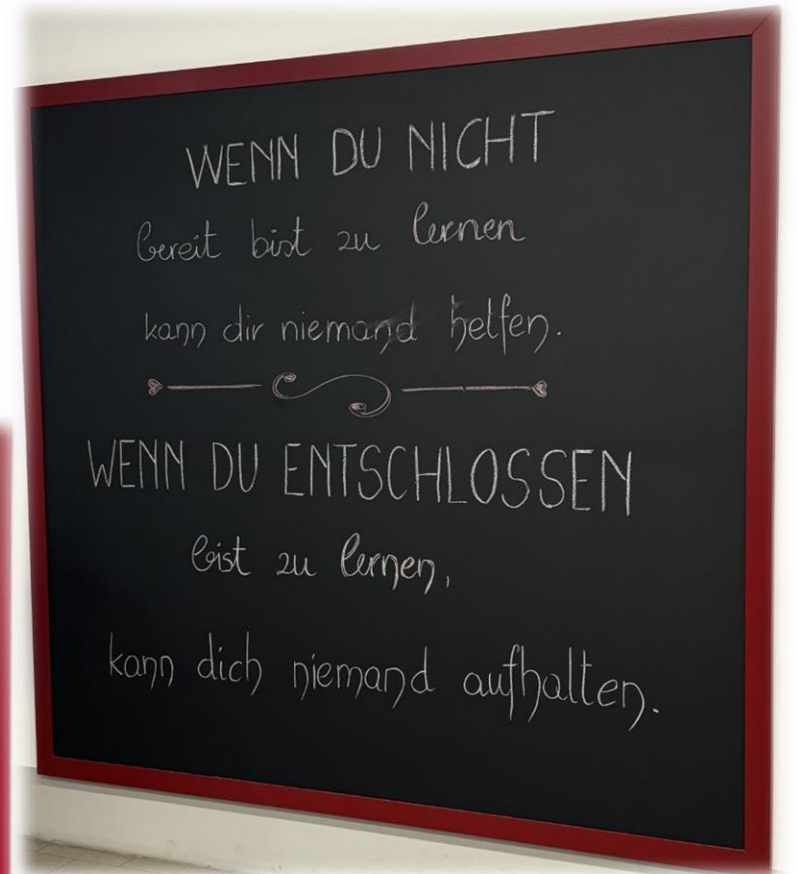 WENN DU NICHT
bereit bist zu lernen
kann dir niemand helfen.
WENN DU ENTSCHLOSSEN
bist zu lernen,
kann dich niemand aufhalten.